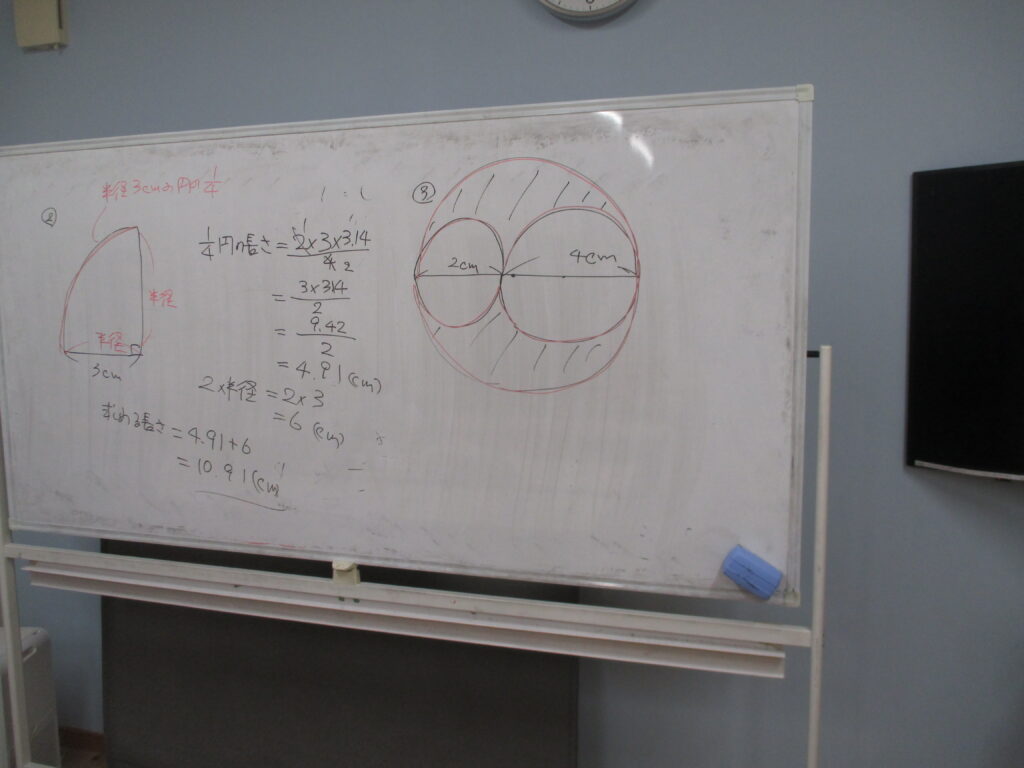 ②
半径3cmの円の1/4
半径
半径
3cm
1/4円の長さ = 2×3×3.14/4 2
= 3×3.14/2
= 9.42/2
= 4.91(cm)
2×半径 = 2×3
= 6 (cm)
求める長さ = 4.91+6
= 10.91(cm
③
2cm
4cm